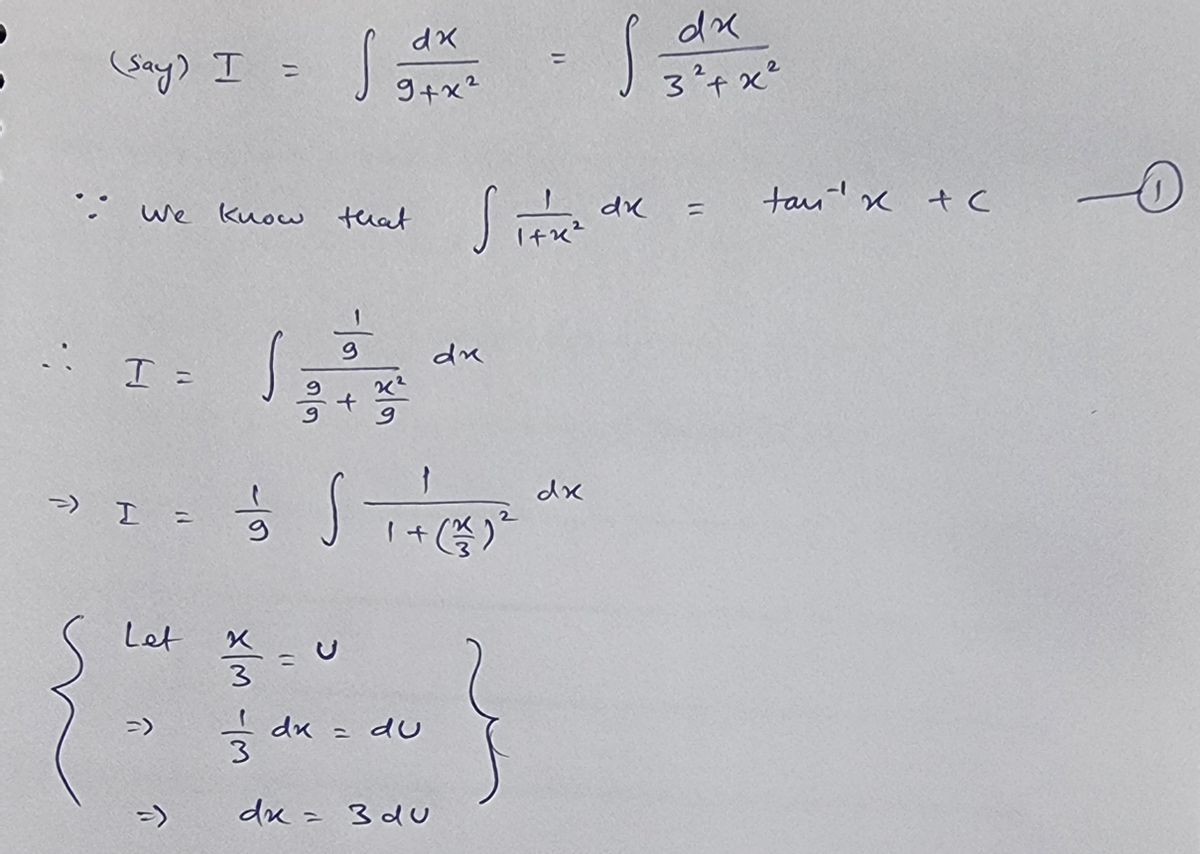 (say) I = ∫ dx/(9+x²) = ∫ dx/(3²+x²)
∵ We know that ∫ 1/(1+x²) dx = tan⁻¹ x + c —①
∴ I = ∫ (1/9)/(9/9 + x²/9) dx
=> I = 1/9 ∫ 1/(1+(x/3)²) dx
{ Let x/3 = U
=> 1/3 dx = dU }
=> dx = 3 dU